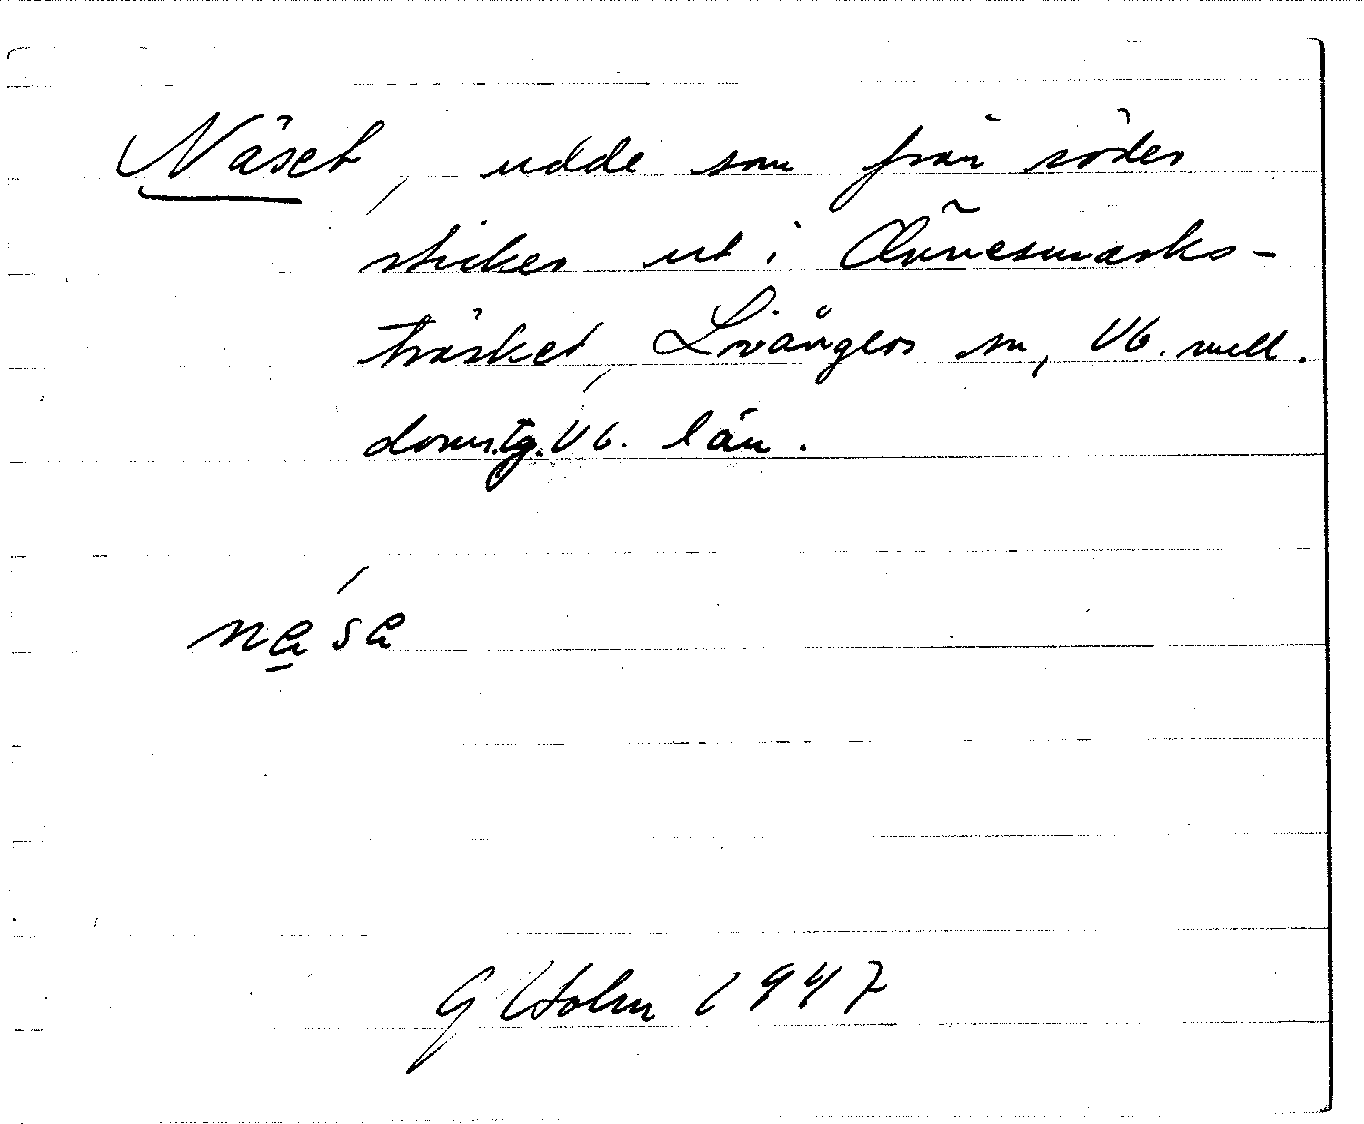 Näset, udde som från söder
sticker ut i Önnesmarks-
träsket, Lövångers sn, Vb. mell.
doms.tg. Vb. län.
G Holm 1947